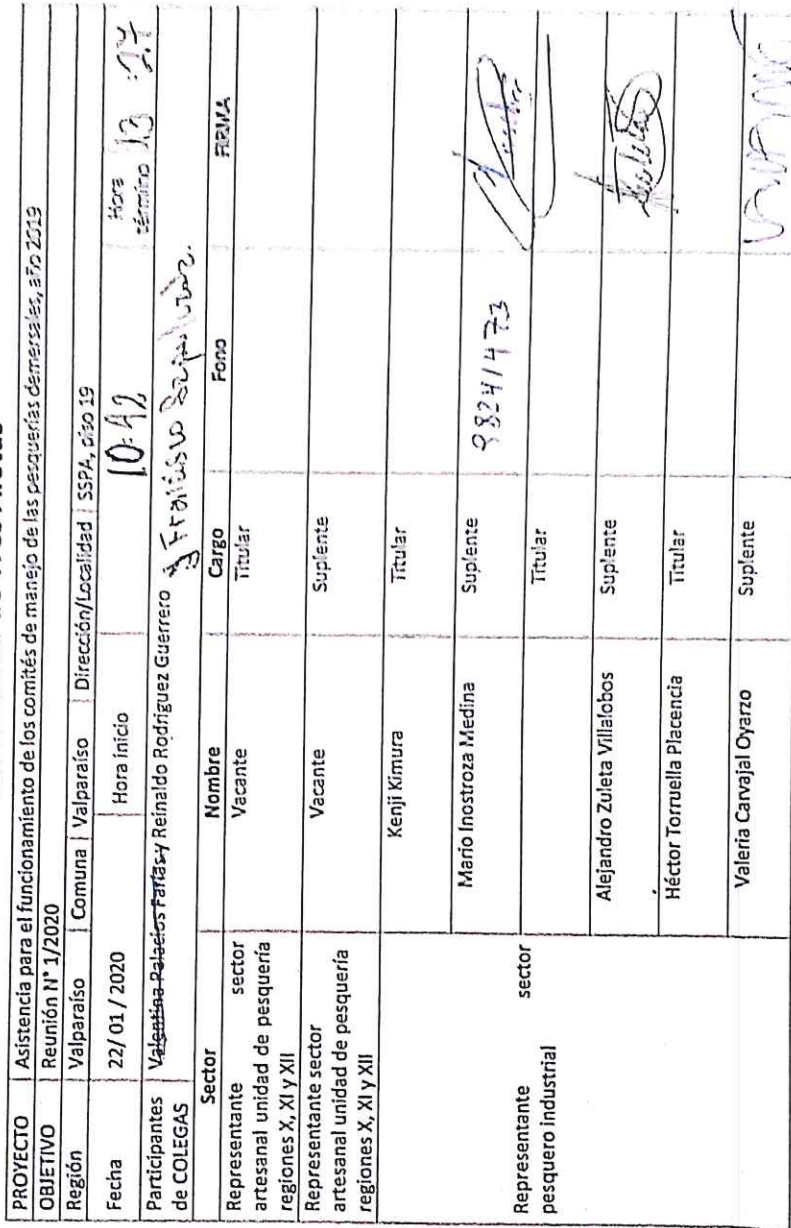 PROYECTO Asistencia para el funcionamiento de los comités de manejo de las pesquerías demersales, año 2019
OBJETIVO Reunión N° 1/2020
Región Valparaíso Comuna Valparaíso Dirección/Localidad SSPA, piso 19
Fecha 22/ 01 / 2020 Hora inicio 10:42 Hora término 13:27
Participantes de COLEGAS Valentina Palacios Farías y Reinaldo Rodríguez Guerrero y Francisco
Sector Nombre Cargo Fono FIRMA
Representante sector artesanal unidad de pesquería regiones X, XI y XII Vacante Titular
Representante sector artesanal unidad de pesquería regiones X, XI y XII Vacante Suplente
Representante sector pesquero industrial
Kenji Kimura Titular
Mario Inostroza Medina Suplente 98241473
Titular
Alejandro Zuleta Villalobos Suplente
Héctor Torruella Placencia Titular
Valeria Carvajal Oyarzo Suplente